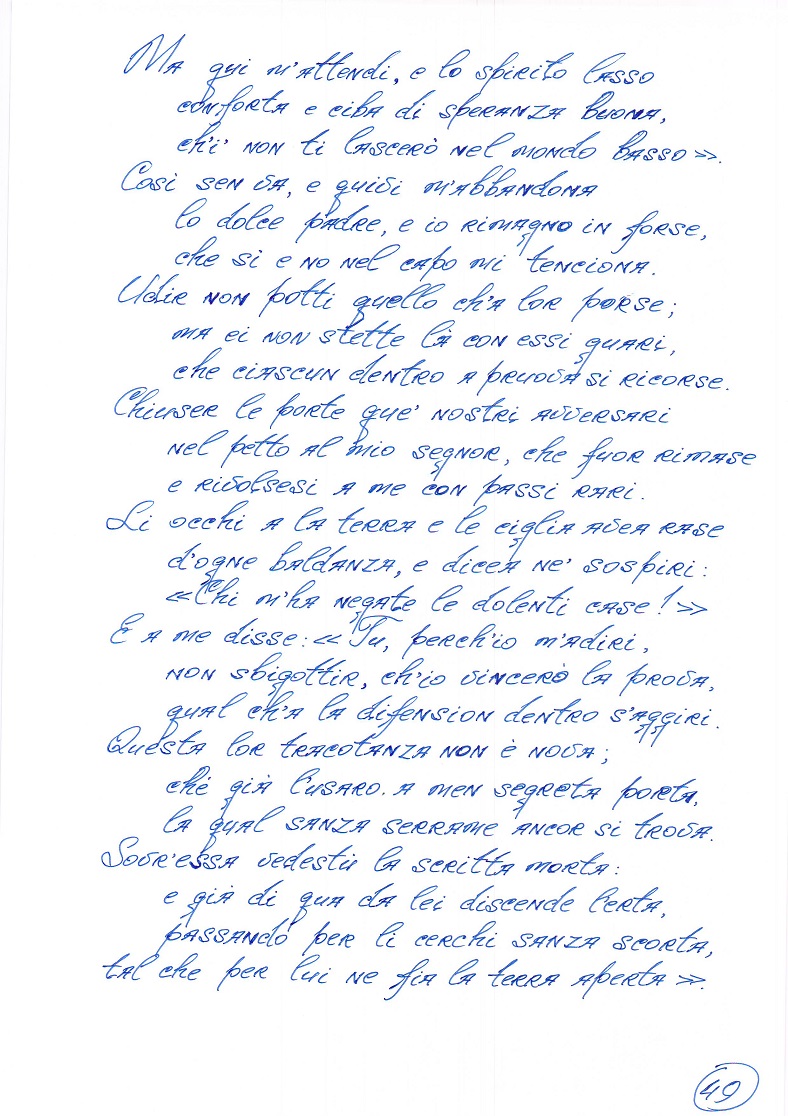 Ma qui m'attendi, e lo spirito lasso
conforta e ciba di speranza buona,
ch'i' non ti lascerò nel mondo basso».
Così sen va, e quivi m'abbandona
lo dolce padre, e io rimagno in forse,
che sì e no nel capo mi tenciona.
Udir non potti quello ch'a lor porse;
ma ei non stette là con essi guari,
che ciascun dentro a pruova si ricorse.
Chiuser le porte que' nostri avversari
nel petto al mio segnor, che fuor rimase
e rivolsesi a me con passi rari.
Li occhi a la terra e le ciglia avea rase
d'ogne baldanza, e dicea ne' sospiri:
«Chi m'ha negate le dolenti case!»
E a me disse: «Tu, perch'io m'adiri,
non sbigottir, ch'io vincerò la prova,
qual ch'a la difension dentro s'aggiri.
Questa lor tracotanza non è nova;
ché già l'usaro. a men segreta porta,
la qual sanza serrame ancor si trova.
Sovr'essa vedestù la scritta morta:
e già di qua da lei discende l'erta,
passando per li cerchi sanza scorta,
tal che per lui ne fia la terra aperta».
49